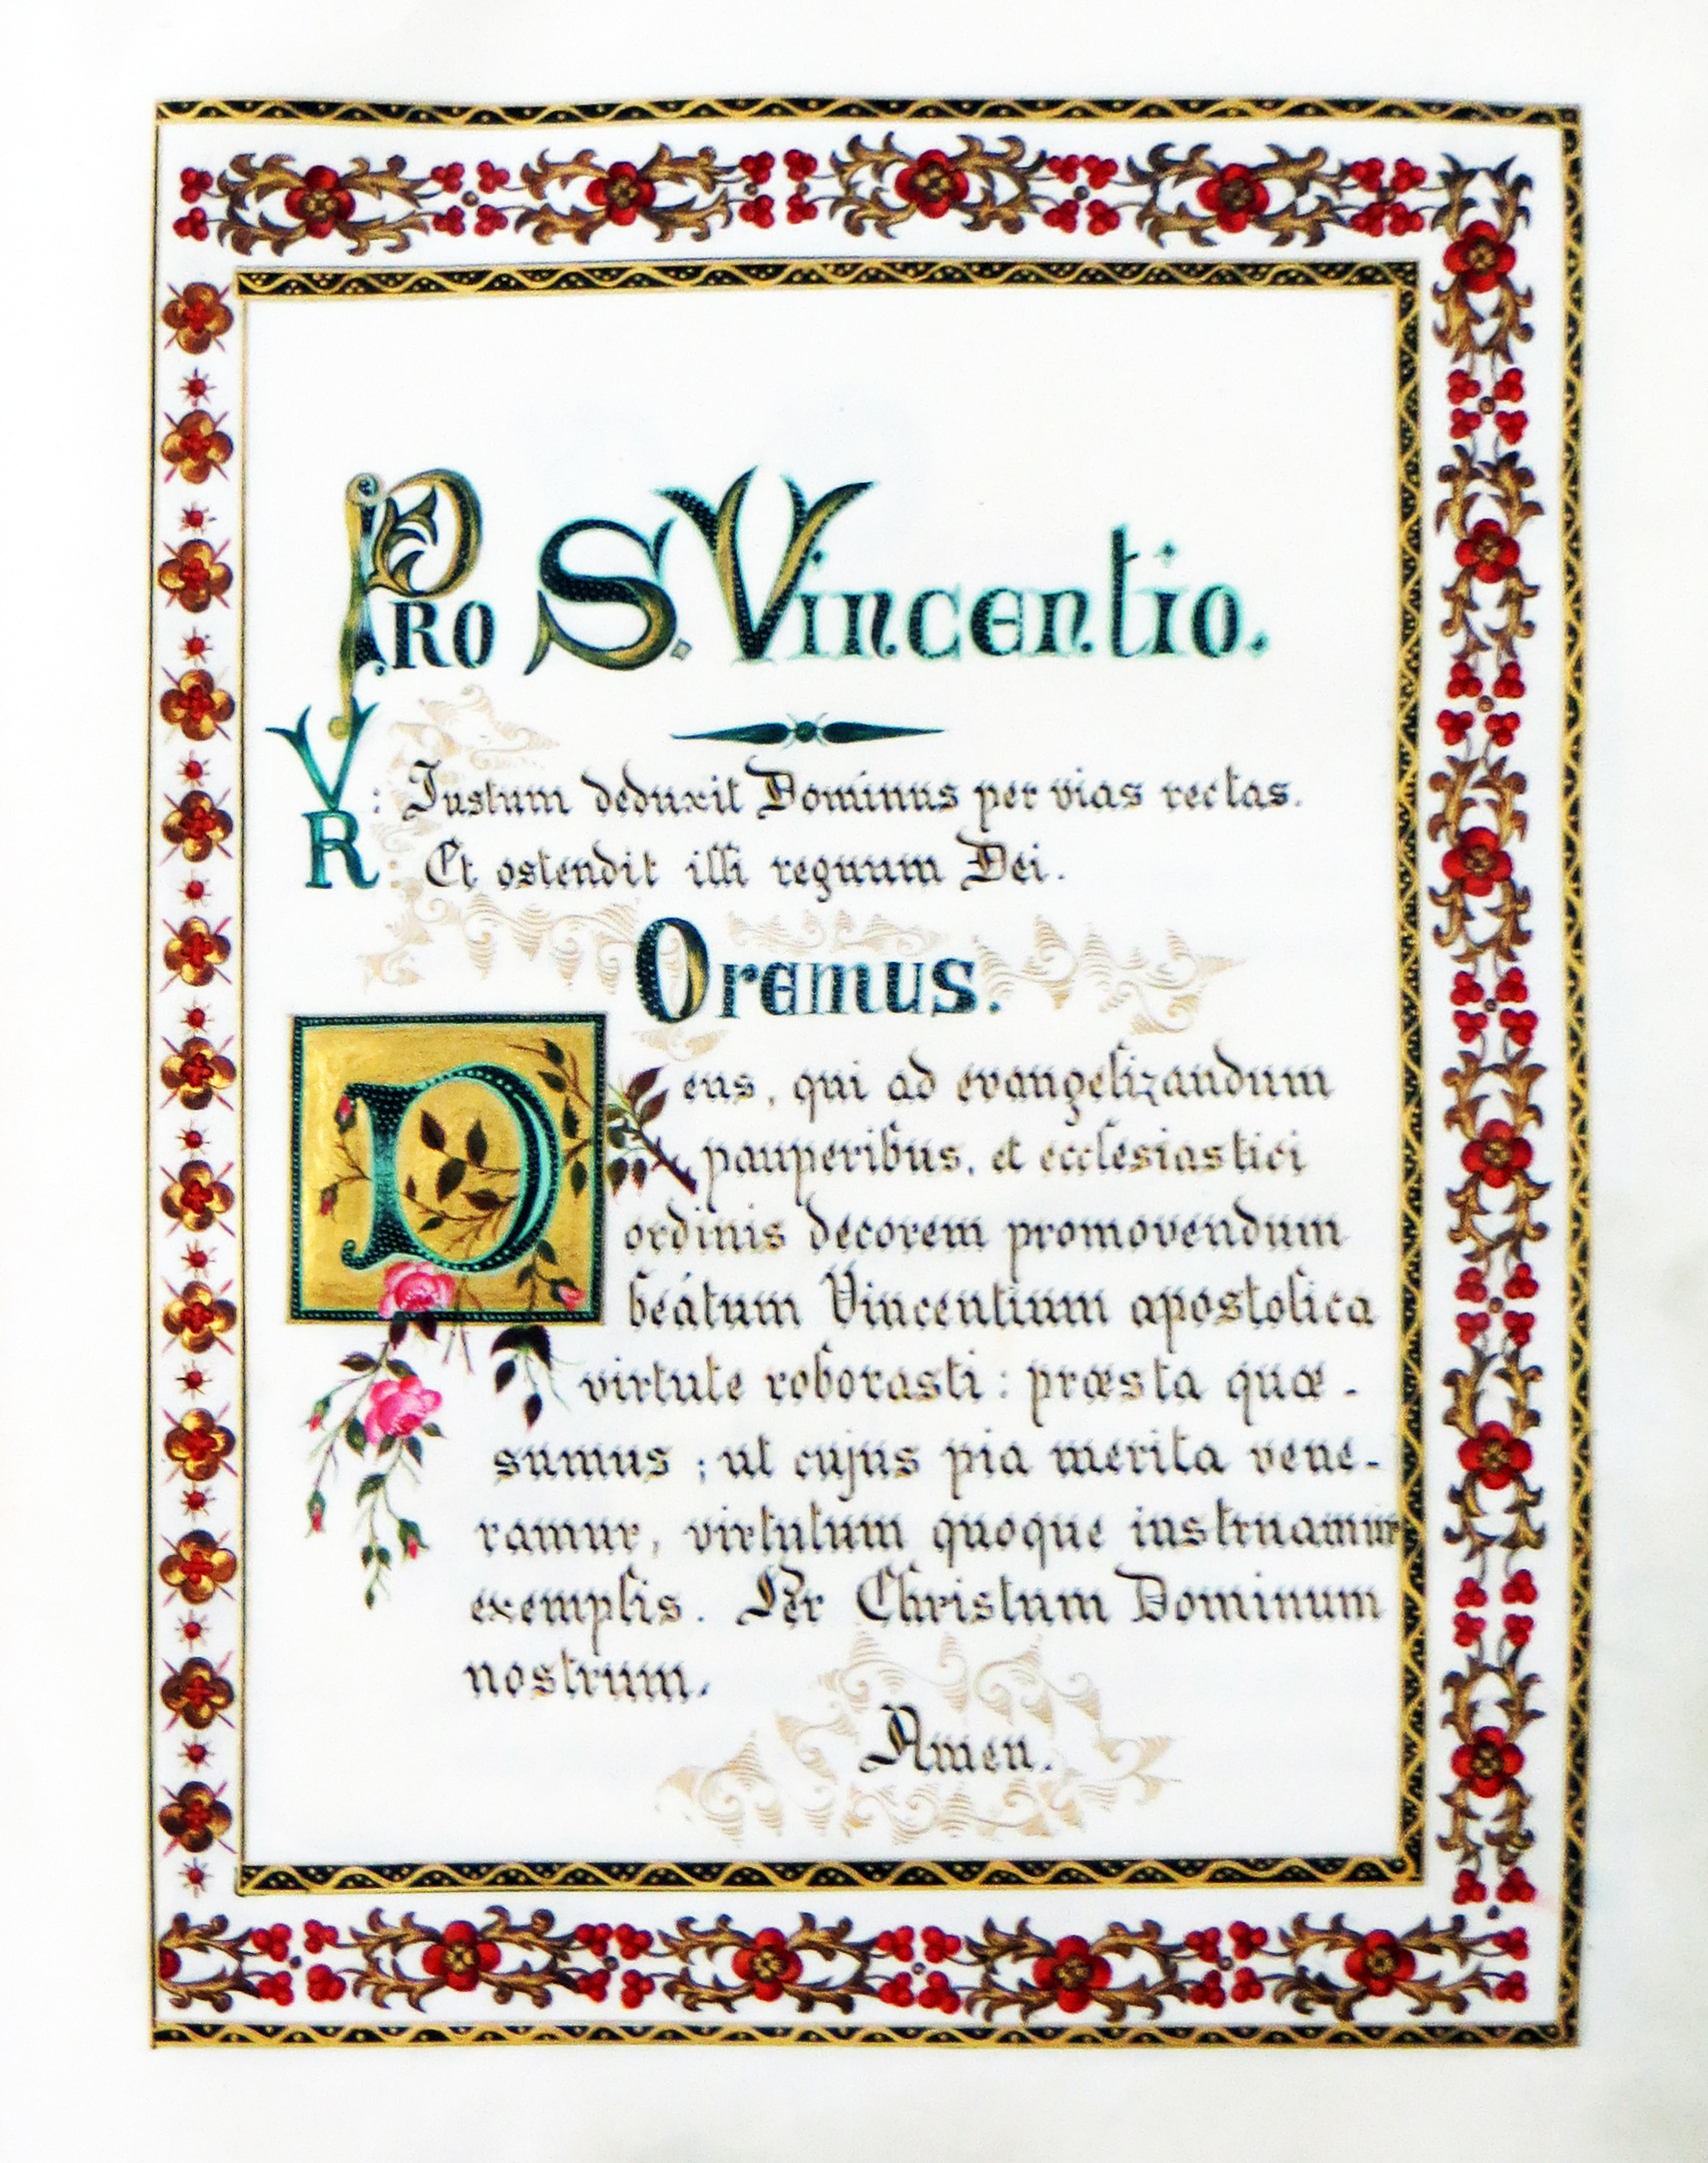 Pro S. Vincentio.
V: Justum deduxit Dominus per vias rectas.
R: Et ostendit illi regnum Dei.
Oremus.
Deus, qui ad evangelizandum
pauperibus, et ecclesiastici
ordinis decorem promovendum
beátum Vincentium apostolica
virtute roborasti: præsta quæ-
sumus; ut cujus pia merita vene-
ramur, virtutum quoque instruamur
exemplis. Per Christum Dominum
nostrum.
Amen.